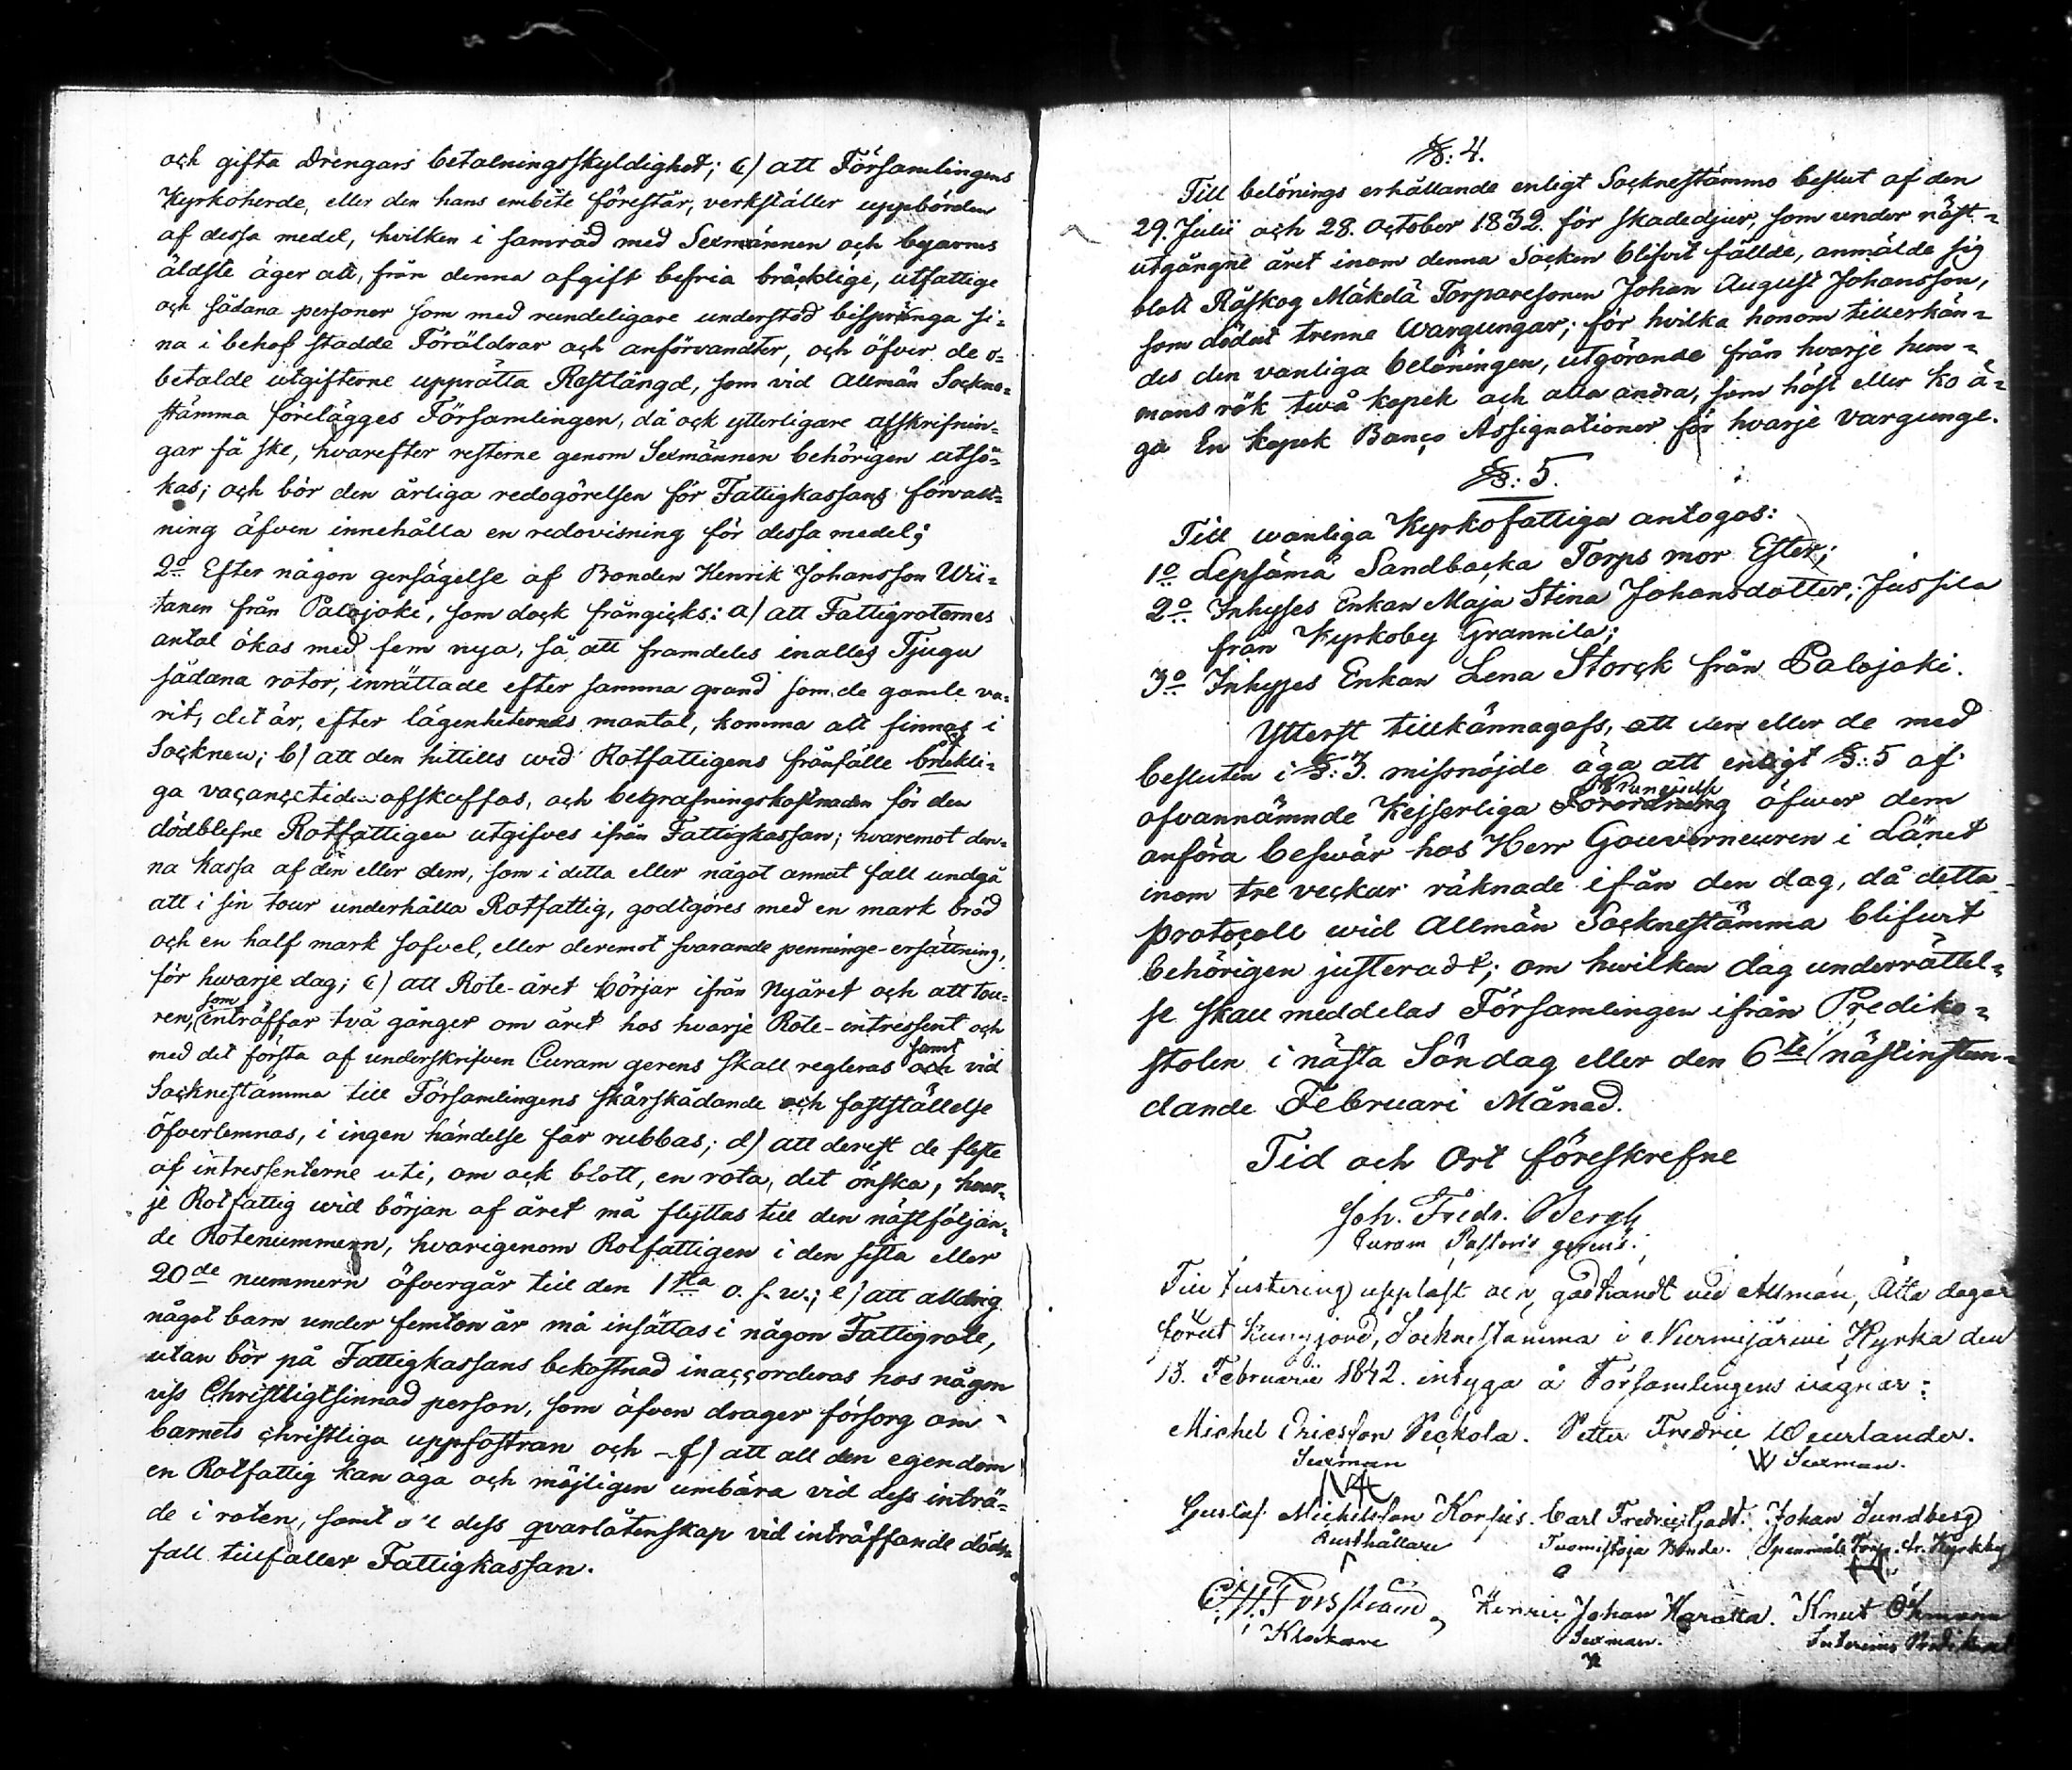 och gifta Drengars betalningsskyldighet; c) att Församlingens
Kyrkoherde, eller den hans embete förestår, verkställer uppbörden
af dessa medel, hvilken i samråd med Sexmännen och byarnes
äldste äger att, från denna afgift befria bräcklige, utfattige
och sådana personer som med rundeligare understöd bispränga si-
na i behof stadde Föräldrar och anförvandter, och öfver de o-
betalde utgifterne upprätta Restlängd, som vid Allmän Sockne-
stämma förelägges Församlingen, då ock ytterligare afskrifnin-
gar få ske, hvarefter resterne genom Sexmännen behörigen utsö-
kas; och bör den årliga redogörelsen för Fattigkassans förvalt-
ning äfven innehålla en redovisning för dessa medel;
2o Efter någon gensägelse af Bonden Henrik Johansson Wii-
tanen från Palojoki, som dock frångicks: a) att Fattigroternes
antal ökas med fem nya, så att framdeles inalles Tjugu
sådana rotor, inrättade efter samma grund som de gamle va-
rit, det är, efter lägenheternas mantal, komma att finnas i
Socknen; b) att den hittills wid Rotfattigens frånfälle brukli-
ga vacancetiden afskaffas, och begrafningskostnaden för den
dödblefne Rotfattigen utgifves ifrån Fattigkassan; hvaremot den-
na kassa af den eller dem, som i detta eller något annat fall undgå
att i sin tour underhålla Rotfattig, godtgöres med en mark bröd
och en half mark sofvel, eller deremot svarande penninge-ersättning,
för hwarje dag; c) att Rote-året börjar ifrån Nyåret och att tou-
ren, som inträffar två gånger om året hos hvarje Rote-intressent och
med det första af underskrifven Curam gerens skall regleras samt vid
Socknestämma till Församlingens skärskådande och fastställelse
öfverlemnas, i ingen händelse får rubbas; d) att derest de fleste
af intressenterne uti, om ock blott, en rota, det önska, hvar-
je Rotfattig wid början af året må flyttas till den nästföljan-
de Rotenummern, hvarigenom Rotfattigen i den sista eller
20de nummern öfvergår till den 1sta o. s. w.; e) att alldrig
något barn under femton år må insättas i någon Fattigrote,
utan bör på Fattigkassans bekostnad inaccorderas hos någon
viss Christligtsinnad person, som äfven drager försorg om
barnets christliga uppfostran och - f) att all den egendom
en Rotfattig kan äga och möjligen umbära vid dess inträ-
de i roten, samt dess qvarlåtenskap vid inträffande döds-
fall tillfaller Fattigkassan.
§: 4.
Till belönings erhållande enligt Socknestämmo beslut af den
29. Julii och 28. October 1832. för skadedjur, som under näst-
utgångne året inom denna Socken blifvit fällde, anmälde sig
blott Råskog Mäkelä Torparesonen Johan August Johansson,
som dödat trenne Wargungar; för hvilka honom tillerkän-
des den vanliga belöningen, utgörande från hvarje hem-
mans rök twå kopek och alla andra, som häst eller ko ä-
ga En kopek Banco Assignationer för hvarje vargunge.
§: 5.
Till wanliga Kyrkofattiga antogos:
1o Lepsämä Sandbacka Torps mor Ester;
2o Inhyses Enkan Maja Stina Johansdotter, Jussila
från Kyrkoby Grannila;
3o Inhyses Enkan Lena Storck från Palojoki.
Ytterst tillkännagafs, att den eller de med
besluten i §: 3. missnöjde äga att enligt §: 5 af
ofvannämnde Kejserliga Kungörelse öfwer dem
anföra beswär hos Herr Gouverneuren i Länet
inom tre veckor räknade ifrån den dag, då detta
protocoll wid Allmän Socknestämma blifwit
behörigen justeradt; om hwilken dag underrättel-
se skall meddelas Församlingen ifrån Prediko-
stolen i nästa Söndag eller den 6te nästinstun-
dande Februari Månad.
Tid och Ort föreskrefne
Joh. Fredr. Bergh
Curam Pastoris gerens.
Till Justering uppläst och godkändt vid Allmän, Åtta dagar
förut kungjord, Socknestämma i Nurmijärvi Kyrka den
13. Februarii 1842. intyga å Församlingens vägnar:
Michel Ericsson Seckola. Petter Fredric Weurlander.
Sexman Sexman.
Gustaf Michelsson Korpis. Carl Fredric Johan Sundberg
Rusthållare Tuomistoja Bonde.
Forsström, Henric Johan Haratta. Knut Öhmann
Klockare Sexman. Interims Predikant